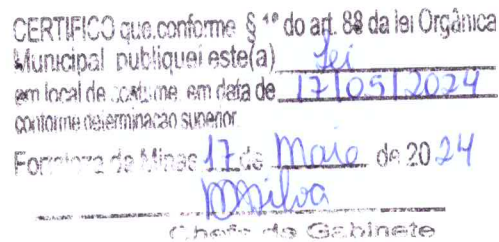 CERTIFICO que.conforme § 1º do art. 88 da lei Orgânica
Municipal publiquei este(a) Lei
em local de costume, em data de 17/05/2024
conforme determinacao superior.
Fortaleza de Minas 17 de Maio de 2024
MSilva
Chefe de Gabinete